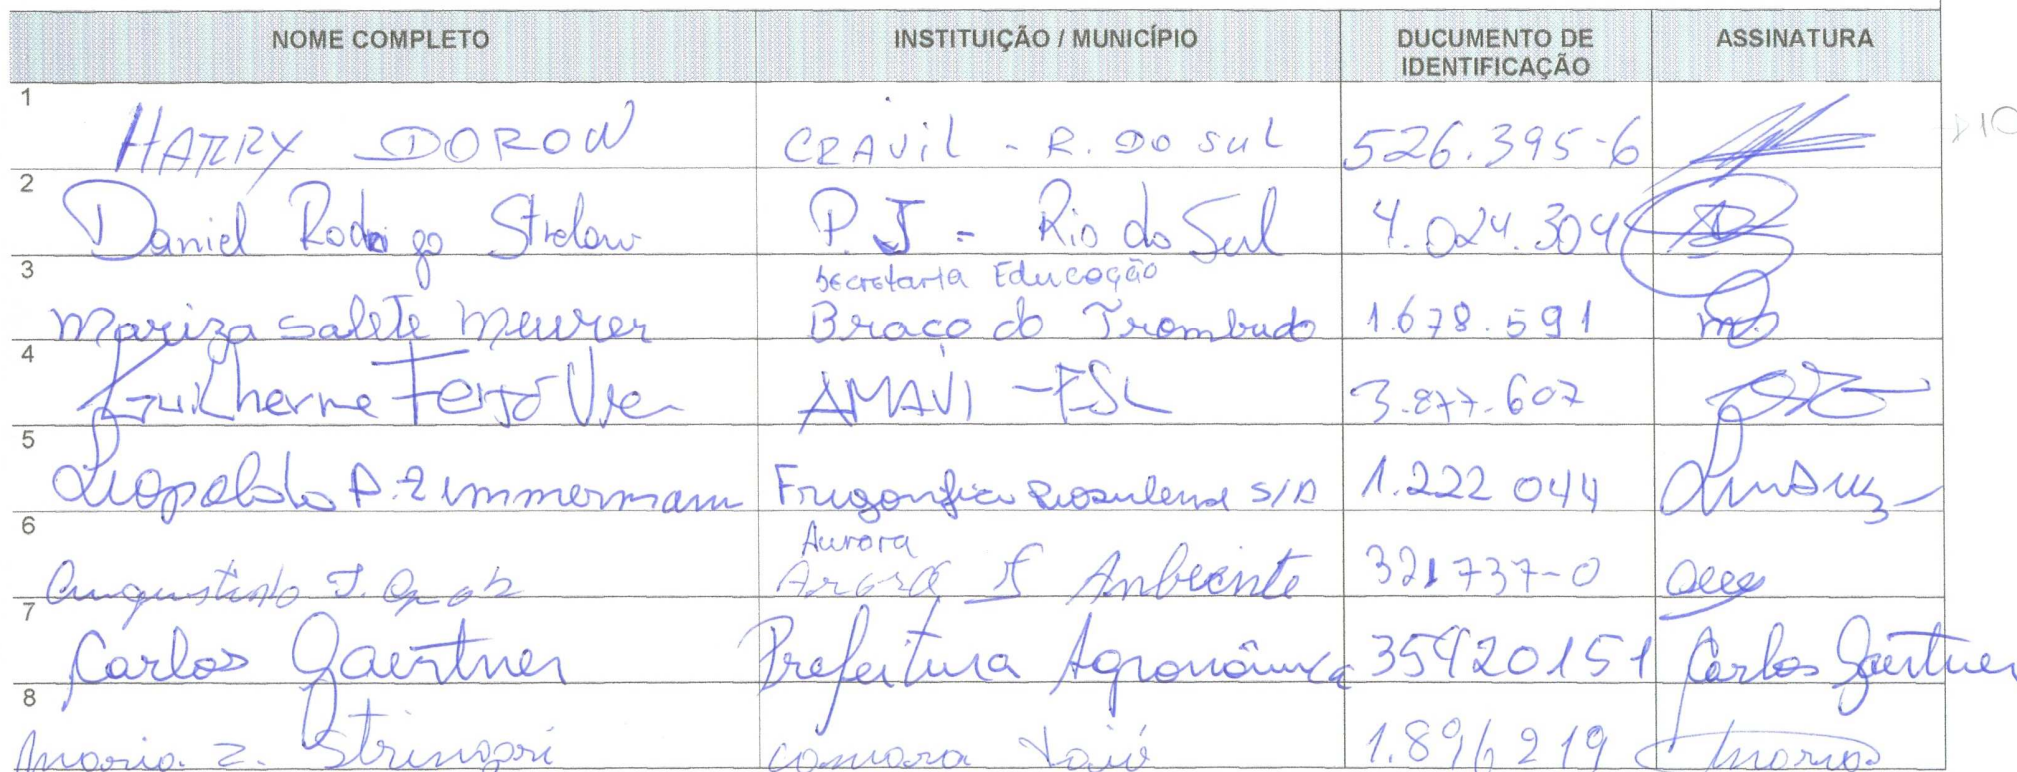 NOME COMPLETO INSTITUIÇÃO / MUNICÍPIO DUCUMENTO DE IDENTIFICAÇÃO ASSINATURA
1 HARRY DOROW CRAVIL - R. DO SUL 526.395-6
2 Daniel Rodrigo Strelow P.J - Rio do Sul 4.024.304
Secretaria Educação
3 Mariza Salete Meurer Braço do Trombudo 1.678.591
4 Guilherme AMAVI - 3.877.607
5 Leopoldo A. Zimmermann Frigorífico Riosulense S/A 1.222 044
Aurora
6 J. Ambiente 321737-0
7 Carlos Gaertner Prefeitura Agronômica 35920151 Carlos Gaertner
8 Maria Z. Stringari Camara Taió 1.896219 Maria